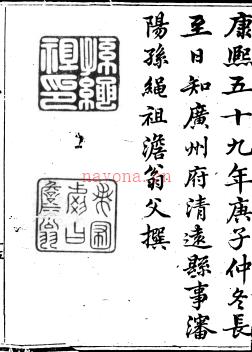 康熙五十九年庚子仲冬長
至日知廣州府清遠縣事瀋
陽孫繩祖澹翁父撰
孫繩祖印
nayona.cn